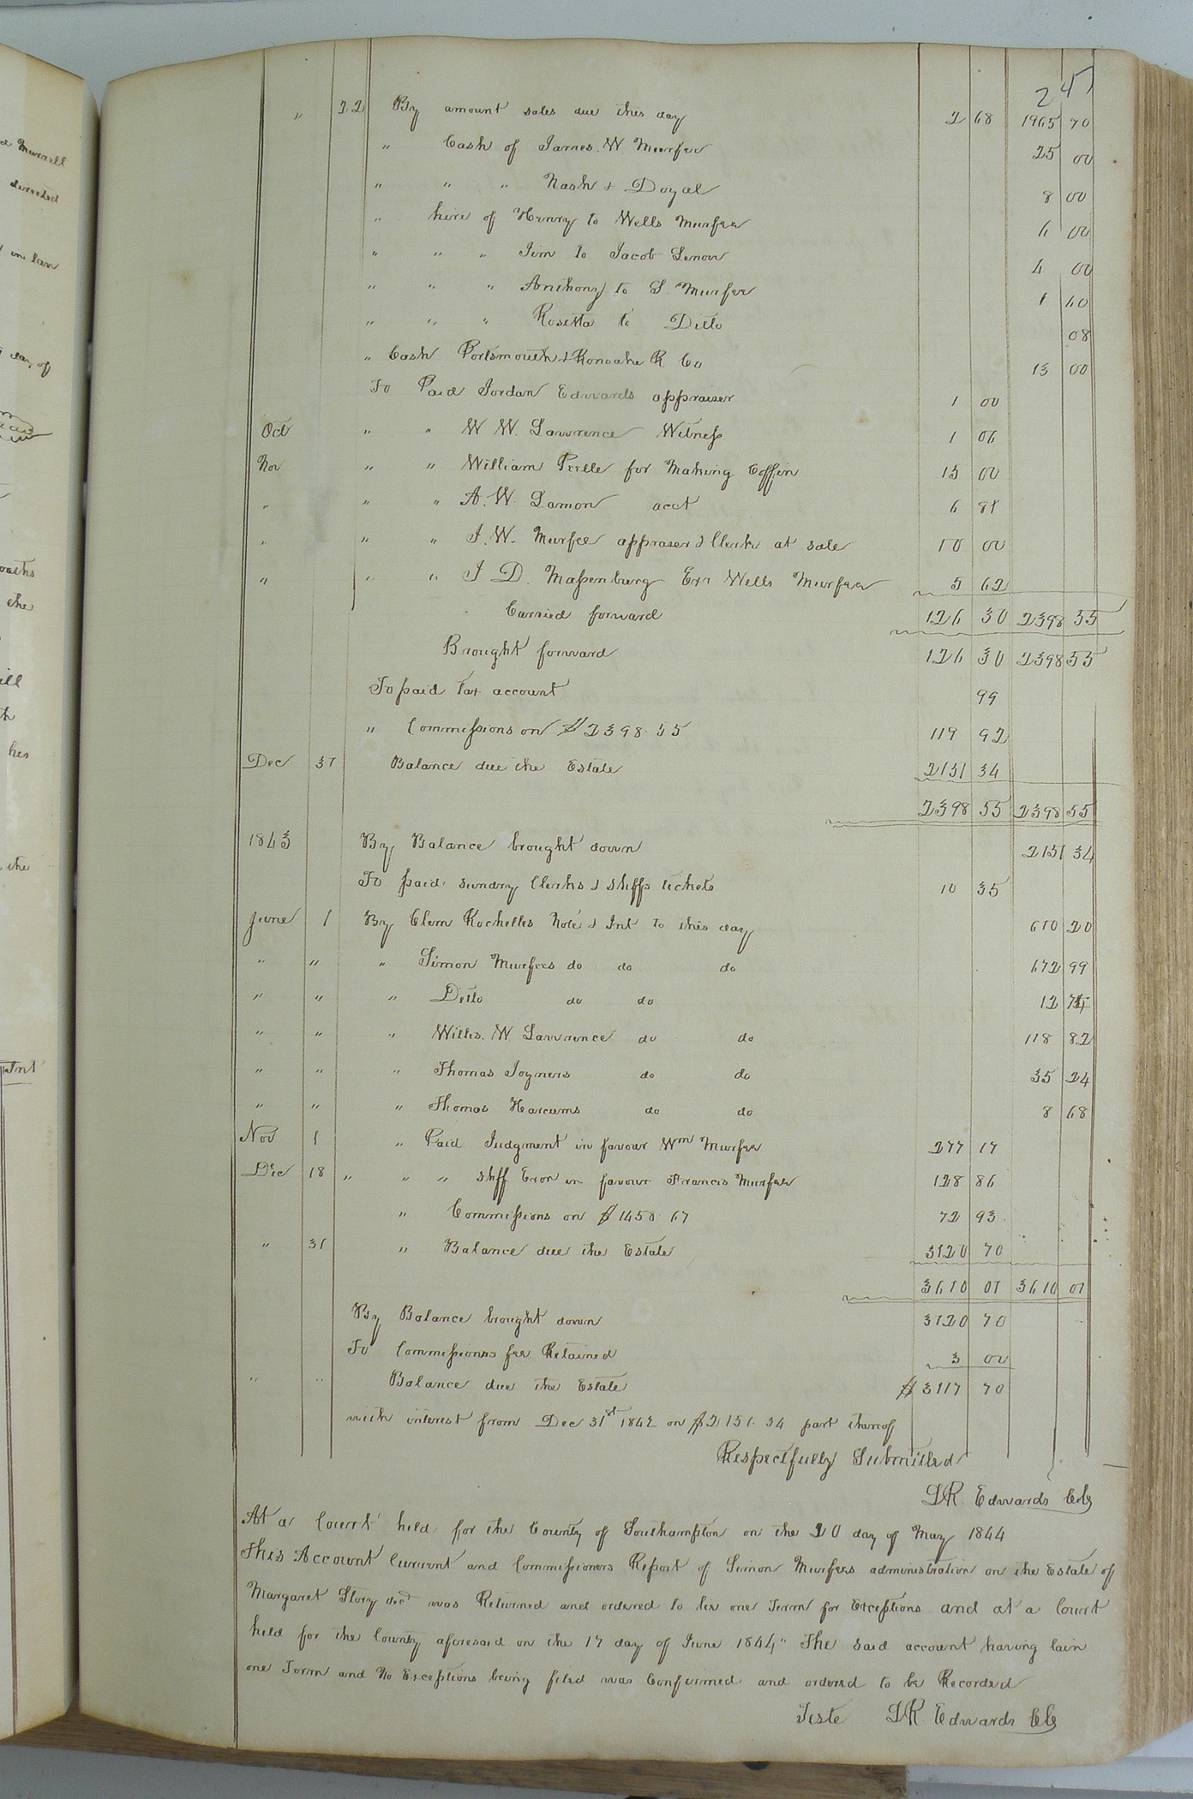 247
" 22 By amount sales due this day 2 68 1965 70
" Cash of James. W Murfee 25 00
" " " Nash & Doyal 8 00
" hire of Henry to Wells Murfee 6 00
" " " Jim to Jacob Lenow 4 00
" " " Anthony to S. Murfee 1 60
" " " Rosetta to Ditto 08
" Cash Portsmouth & Ronoake R Co 13 00
To Paid Jordan Edwards appraiser 1 00
Oct " " W W. Lawrence Witness 1 06
Nov " " William for Making Coffin 15 00
" " " A. W. Lamon acct 6 81
" " " J. W. Murfee appraser & Clerk at sale 10 00
" " " J D. Massenburg Exr Wells Murfee 5 62
Carried forward 126 30 2398 55
Brought forward 126 30 2398 55
To paid Tax account 99
" Commissions on $2398 55 119 92
Dec 31 Balance due the Estate 2151 34
2398 55 2398 55
1843 By Balance brought down 2151 34
To paid sundry Clerks & shffs tickets 10 35
June 1 By Clem Rochelles Note & Int to this day 610 20
" " " Simon Murfees do do do 672 99
" " " Ditto do do 12 74
" " " Willis. W. Lawrence do do 118 82
" " " Thomas Joyners do do 35 24
" " " Thomas Harcums do do 8 68
Nov 1 " Paid Judgment in favour Wm Murfee 277 17
Dec 18 " " " shff Exon in favour Francis Murfee 128 86
" Commissions on $1458 67 72 93
" 31 " Balance due the Estate 3120 70
3610 01 3610 01
By Balance brought down 3120 70
To Commissioners fee Retained 3 00
" " Balance due the Estate $3117 70
with interest from Dec 31st 1842 on $2151. 34 part thereof
Respectfully Submitted
LR Edwards
At a Court held for the County of Southampton on the 20 day of May 1844
This Account Current and Commissioners Report of Simon Murfees administration on the Estate of
Margaret Story decd was Returned and ordered to lie one Term for Exceptions and at a Court
held for the County aforesaid on the 17 day of June 1844" The said account having lain
one Term and No Exceptions being filed was Confirmed and ordered to be Recorded
Teste LR Edwards